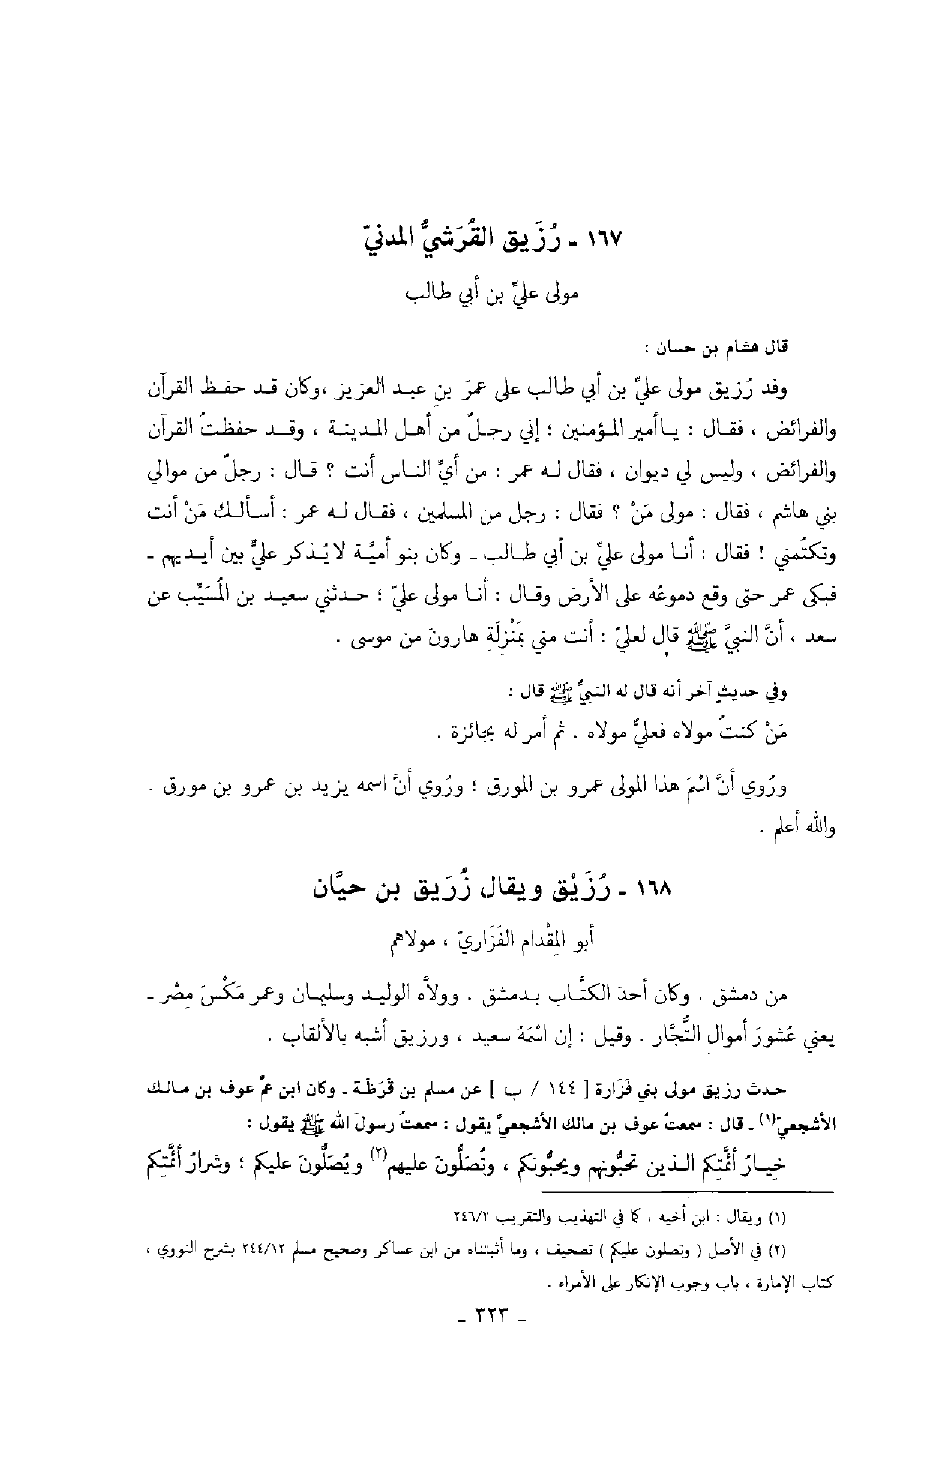 ١٦٧ ـ رُزَيق القُرَشيُّ المدنيّ
مولى عليّ بن أبي طالب
قال هشام بن حسان :
وفد رُزيق مولى عليِّ بن أبي طالب على عمرَ بن عبد العزيز ،وكان قد حفظ القرآن
والفرائض ، فقال : يا أمير المؤمنين ؛ إني رجلٌ من أهل المدينة ، وقد حفظتُ القرآن
والفرائض ، وليس لي ديوان ، فقال له عمر : من أيِّ الناس أنت ؟ قال : رجلٌ من موالي
بني هاشم ، فقال : مولى مَنْ ؟ فقال : رجل من المسلمين ، فقال له عمر : أسألك مَنْ أنت
وتكتُمني ! فقال : أنا مولى عليِّ بن أبي طالب ـ وكان بنو أميَّة لا يُذكر عليٌّ بين أيديهم ـ
فبكى عمر حتى وقع دموعُه على الأرض وقال : أنا مولى عليّ ؛ حدثني سعيد بن المُسَيِّب عن
سعد ، أنَّ النبيَّ ﷺ قال لعليّ : أنت مني بمَنْزِلَةِ هارونَ من موسى .
وفي حديثٍ آخر أنه قال له النبيُّ ﷺ قال :
مَنْ كنتُ مولاه فعليٌّ مولاه . ثم أمر له بجائزة .
ورُوي أنَّ اسْمَ هذا المولى عمرو بن المورق ؛ ورُوي أنَّ اسمه يزيد بن عمرو بن مورق .
والله أعلم .
١٦٨ ـ رُزَيْق ويقال زُرَيق بن حيَّان
أبو المِقْدام الفَزَاريّ ، مولاهم
من دمشق . وكان أحدَ الكتَّاب بدمشق . وولاَّه الوليد وسليمان وعمر مَكْسَ مِصْر ـ
يعني عُشورَ أموال التُّجَّار . وقيل : إن اسْمَهُ سعيد ، ورزيق أشبه بالألقاب .
حدث رزيق مولى بني فَزَارة [ ١٤٤ / ب ] عن مسلم بن قَرَظة ـ وكان ابن عمّ عوف بن مالك
الأشجعيّ(١) ـ قال : سمعتُ عوف بن مالك الأشجعيَّ يقول : سمعتُ رسولَ الله ﷺ يقول :
خِيارُ أئمَّتِكم الذين تحبُّونهم ويحبُّونكم ، وتُصَلُّون عليهم(٢) ويُصَلُّون عليكم ؛ وشرارُ أئمَّتِكم
(١) ويقال : ابن أخيه ، كما في التهذيب والتقريب ٢٤٦/٢
(٢) في الأصل ( وتصلون عليكم ) تصحيف ، وما أثبتناه من ابن عساكر وصحيح مسلم ٢٤٤/١٢ بشرح النووي ،
كتاب الإمارة ، باب وجوب الإنكار على الأمراء .
ـ ٣٢٣ ـ